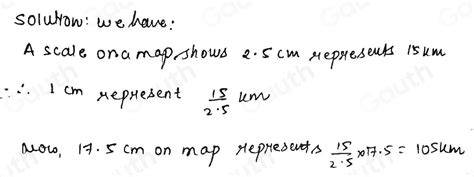 solution: we have:
A scale on a map shows 2.5 cm represents 15 km
∴ 1 cm represent 15/2.5 km
Now, 17.5 cm on map represents 15/2.5 x 17.5 = 105km